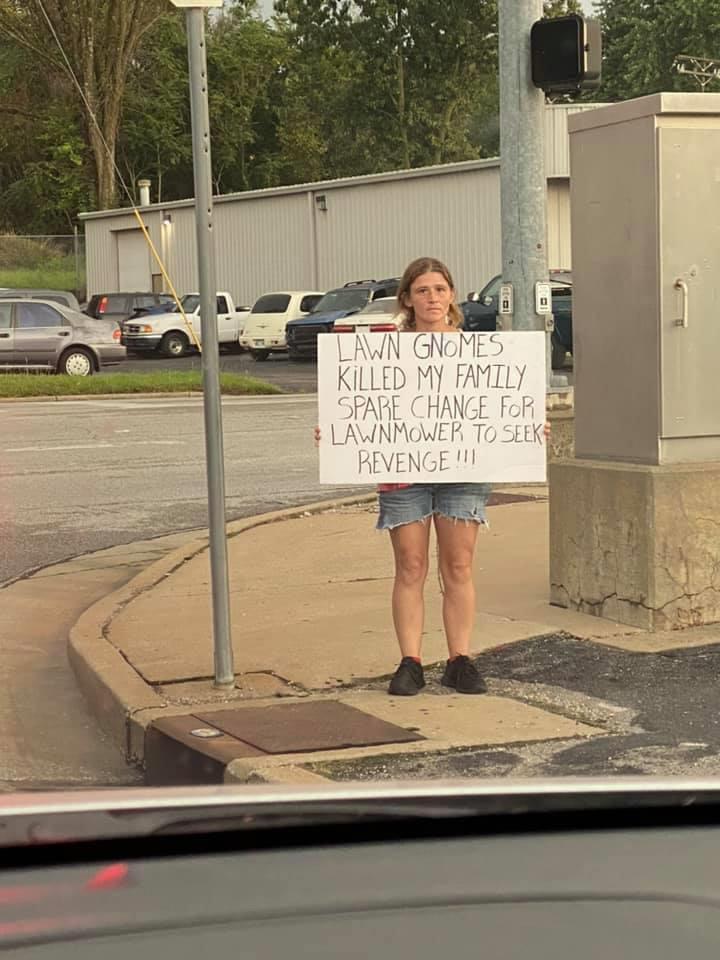 LAWN GNOMES
KILLED MY FAMILY
SPARE CHANGE FOR
LAWNMOWER TO SEEK
REVENGE!!!